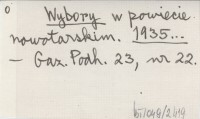 0
Wybory w powiecie
nowotarskim. 1935...
– Gaz. Podh. 23, nr 22.